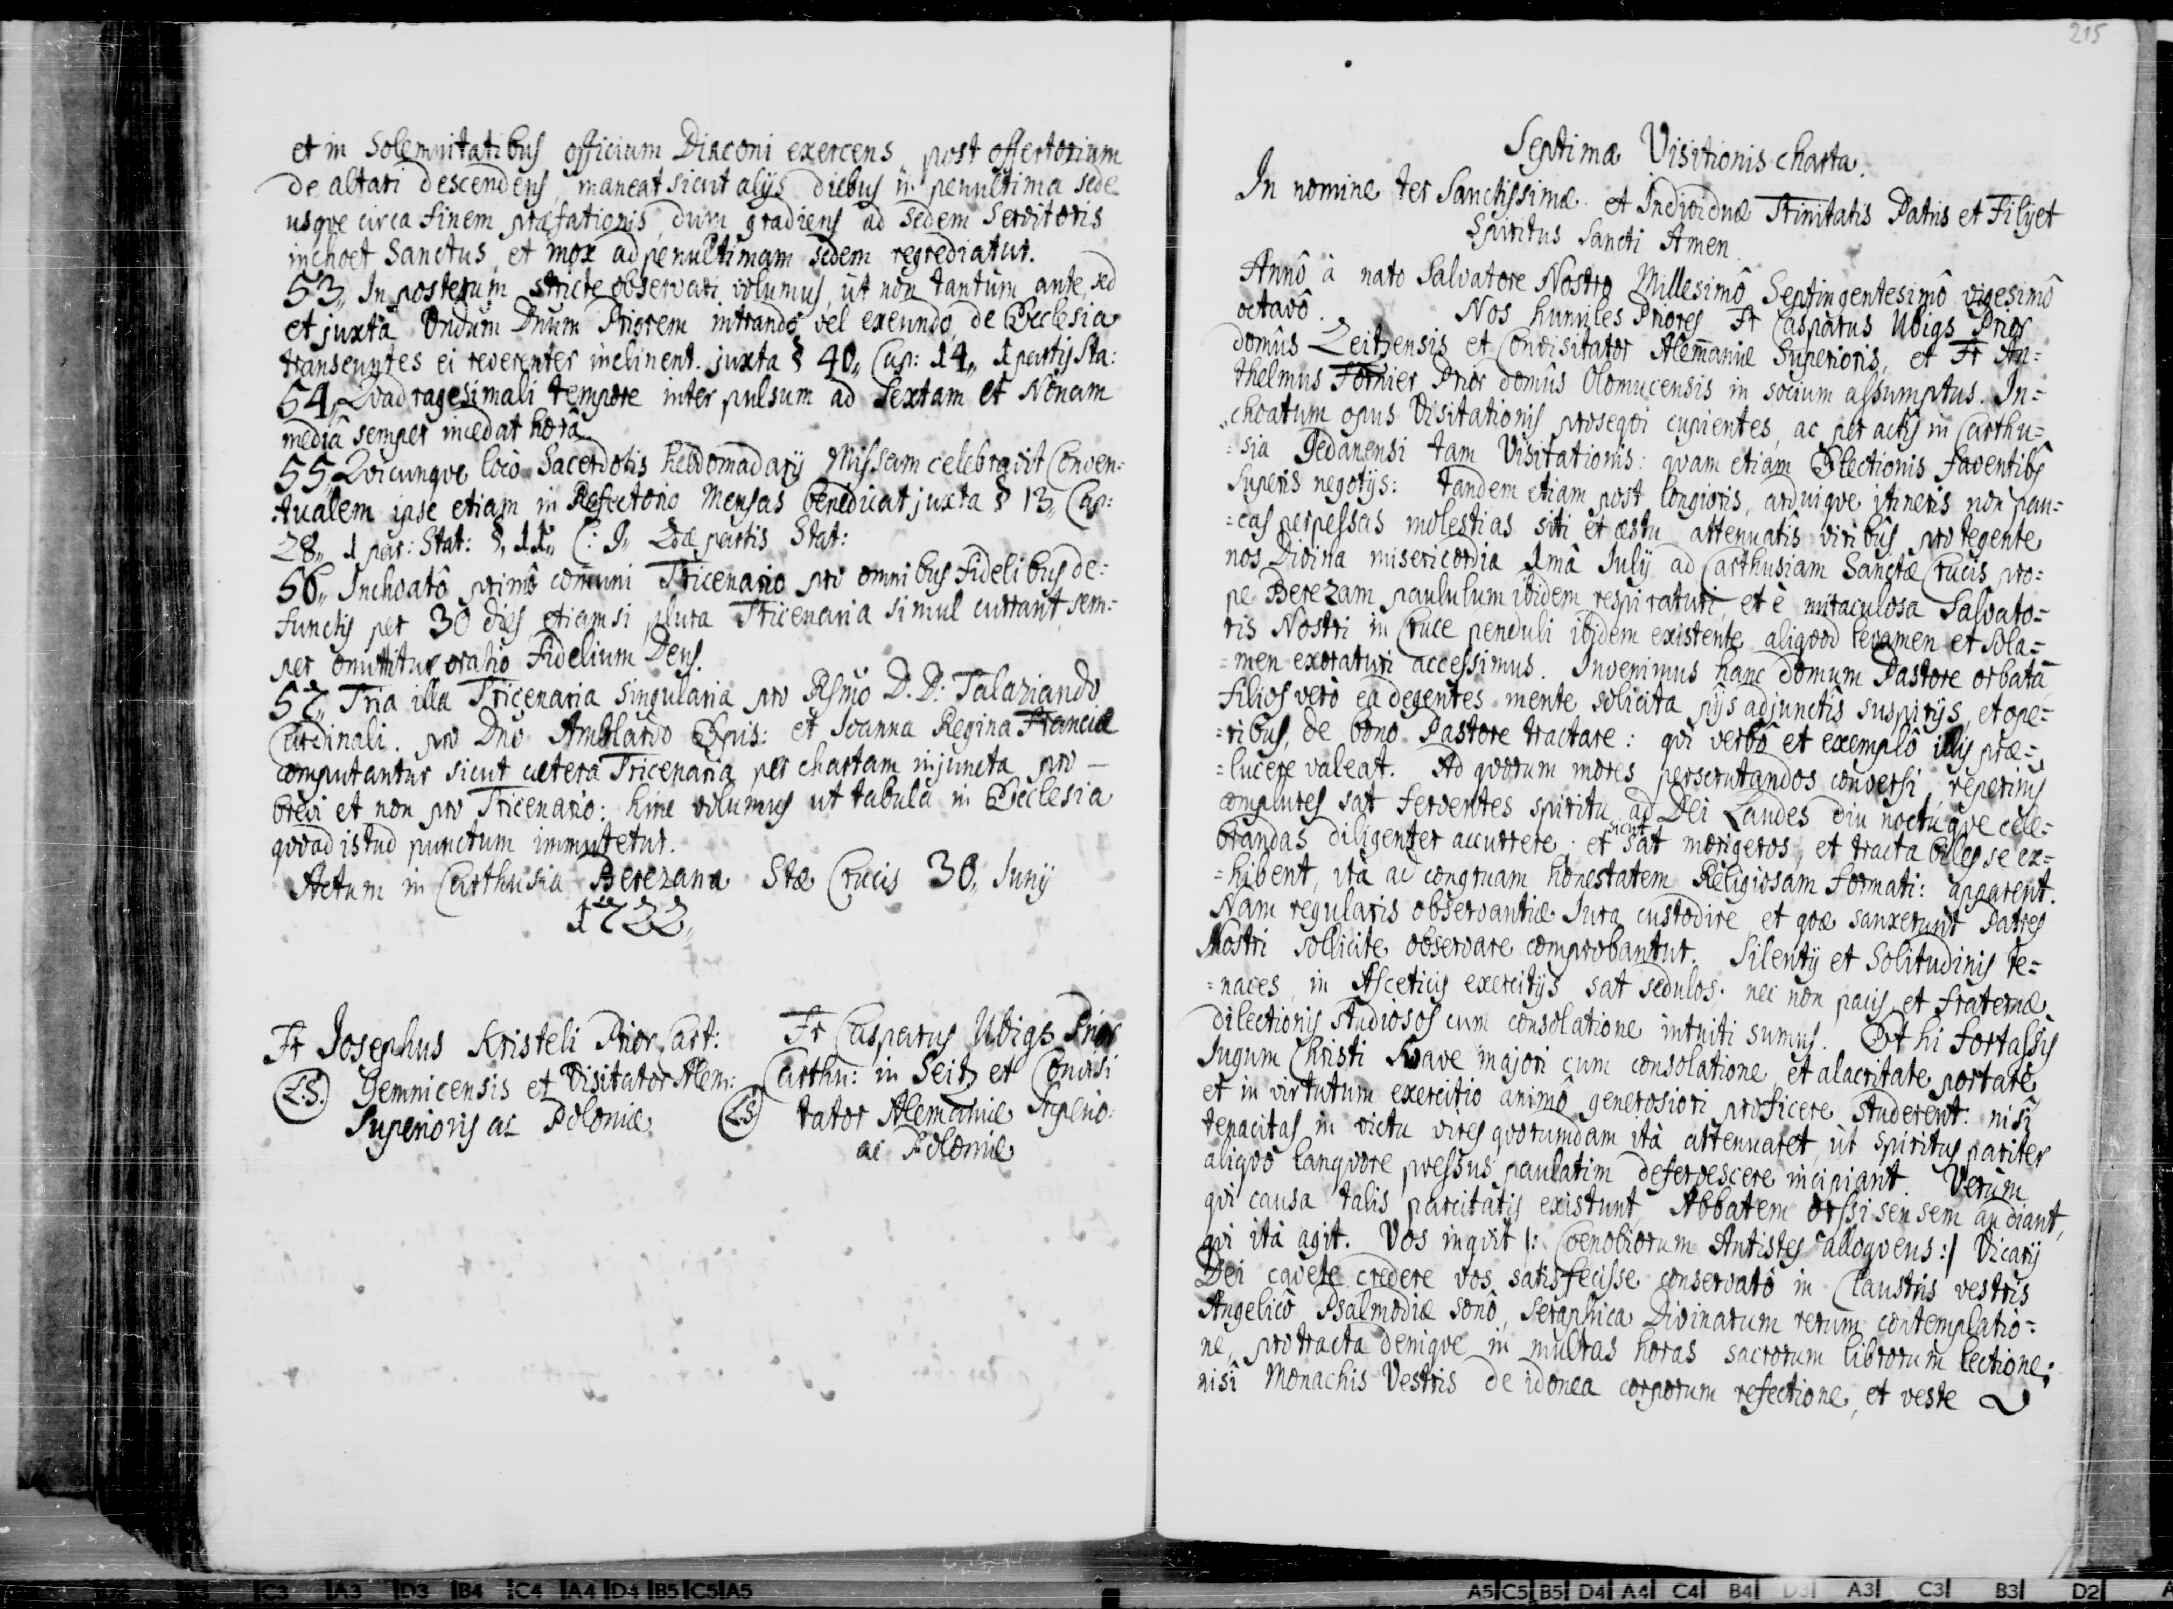 et in Solemnitatibus officium Diaconi exercens, post offertorium
de altari descendens, maneat sicut alijs diebus in penultima sede
usqve circa finem præfationis, dum gradiens ad sedem Servitoris
inchoet Sanctus, et mox ad penultimam sedem regrediatur.
53,, In posterum stricte observari volumus, ut non tantum ante, sed
et juxta Vndum Dnum Priorem intrando vel exeundo de Ecclesia
transeuntes ei reverenter inclinent. juxta § 40,, Cap: 14,, 1 partis Sta:
54,, Qvadragesimali tempore inter pulsum ad Sextam et Nonam
mediâ semper incedat horâ.
55,, Qvicunqve locô Sacerdotis hebdomadarij Missam celebravit Conven:
tualem ipse etiam in Refectorio Mensas benedicat juxta § 13,, Cap:
28,, 1 par: Stat: §, 11,, C: 9,, 2dæ partis Stat:
56,, Inchoatô primô com̄uni Tricenario pro omnibus fidelibus de:
functis per 30 dies etiamsi plura Tricenaria simul currant, sem:
per omittitur oratio Fidelium Deus.
57,, Tria illa Tricenaria singularia pro Rsmo D. D: Talaziando
Cardinali. pro Dno Amblardo Epis: et Joanna Regina Franciæ
computantur sicut cætera Tricenaria per chartam injuncta pro —
brevi et non pro Tricenario: hinc volumus ut tabula in Ecclesia
qvoad istud punctum immutetur.
Actum in Carthusia Berezana Stæ Crucis 30,, Junij
1722,,
Fr Josephus Kristeli Prior Cart:
Gemnicensis et Visitator Alem:
L.S.
Superioris ac Poloniæ
Fr Casparus Ubigs Prior
Carthu: in Seitz et Convisi
L.S.
tator Alemaniæ Superio:
ac Poloniæ
215
Septimæ Visitionis charta.
In nomine ter Sanctissimæ et Individuæ Trinitatis Patris et Filij et
Spiritus Sancti Amen
Annô à nato Salvatore Nostro Millesimô Septingentesimô vigesimô
octavô. Nos humiles Priores Fr Casparus Ubigs Prior
domûs Zeitzensis et Convisitator Alemaniæ Superioris, et Fr An:
thelmus Fornier Prior domûs Olomucensis in socium assumptus. In=
choatum opus Visitationis proseqvi cupientes, ac per actis in Carthu=
=sia Gedanensi tam Visitationis: qvam etiam Electionis faventibs
Superis negotijs: tandem etiam post longioris, arduiqve itineris non pau=
=cas perpessas molestias siti et æstu attenuatis viribûs protegente
nos Divina misericordia 1mâ Julij ad Carthusiam Sanctæ Crucis pro=
pe Berezam paululum ibidem respiraturi, et è miraculosa Salvato=
ris Nostri in Cruce penduli ibidem existente aliqvod levamen et sola=
=men exoraturi accessimus. Invenimus hanc domum Pastore orbatā,
filios verò eâ degentes mente solicita pijs adjunctis suspirijs, et ope=
=ribus, de bono Pastore tractare: qvi verbô et exemplô illis præ=
=lucere valeat. Ad qvorum mores perscrutandos conversi, reperimus
complures sat ferventes spiritu ad Dei Laudes diu noctuqve cele=
brandas diligenter accurrere: et sicut sat morigeros, et tractabiles se ex=
=hibent, ità ad congruam honestatem Religiosam formati: apparent.
Nam regularis observantiæ Jura custodire et qvæ sanxerunt Patres
Nostri sollicite observare comprobantur. Silentij et Solitudinis te=
=naces, in Asceticis exercitijs sat sedulos: nec non pacis et fraternæ
dilectionis studiosos cum consolatione intuiti sumus. Et hi fortassis
Jugum Christi suave majori cum consolatione, et alacritate portare
et in virtutum exercitio animô generosiori proficere studerent: nisi
tenacitas in victu vires qvorumdam ità attenuaret, ut spiritus pariter
aliqvo langvore pressus paulatim defervescere incipiant. Verùm
qvi causa talis parcitatis existunt, Abbatem Orssisensem audiant,
qvi ità agit. Vos inqvit |: Cœnobiorum Antistes alloqvens :| Vicarij
Dei cavete credere vos satisfecisse conservatô in Claustris vestris
Angelicô Psalmodiæ sonô, Seraphica Divinarum rerum contemplatio=
ne, protracta deniqve in multas horas sacrorum librorum lectione;
nisi Monachis Vestris de idonea corporum refectione, et veste